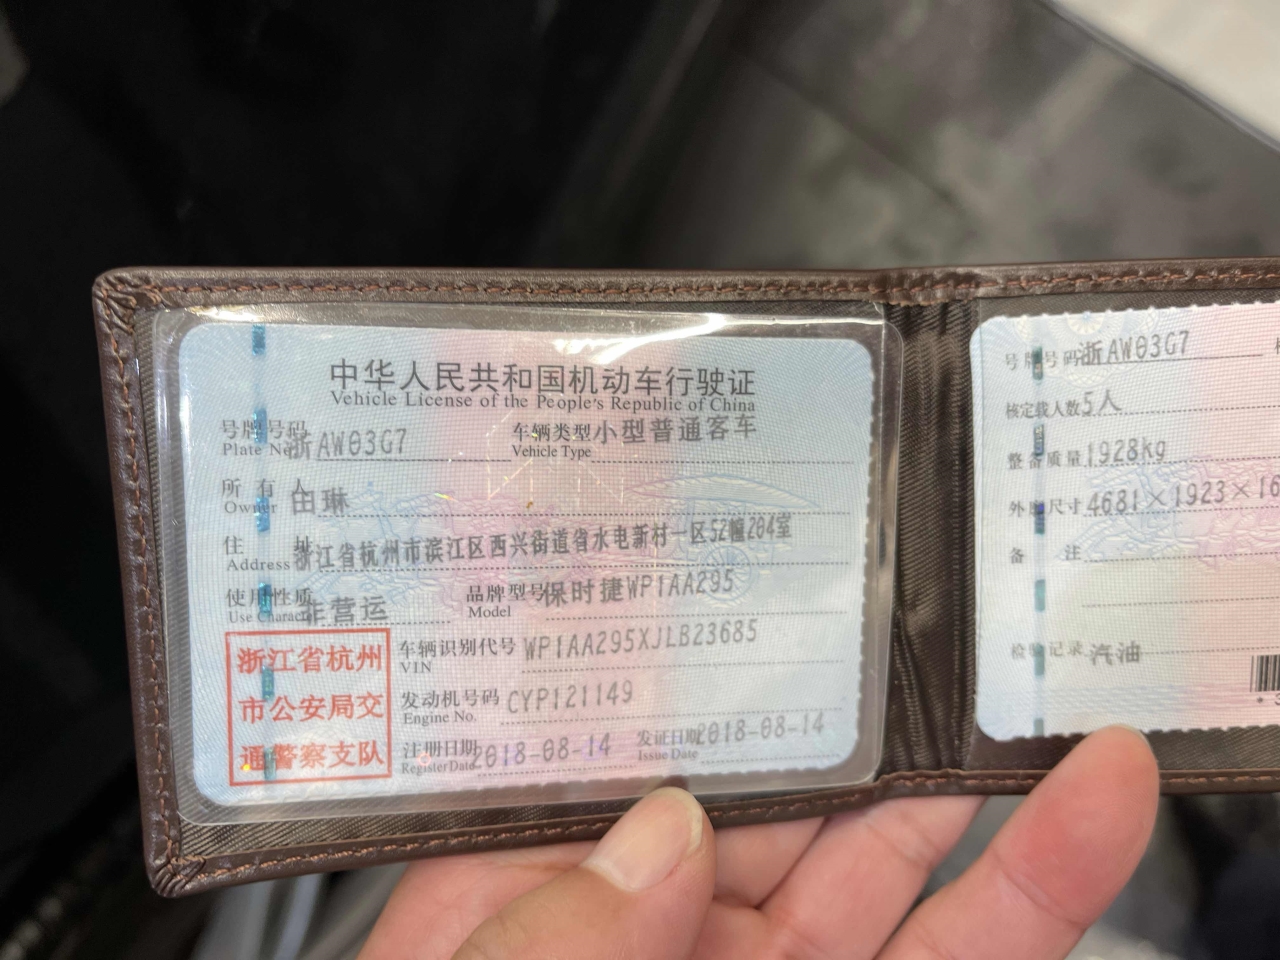 中华人民共和国机动车行驶证
Vehicle License of the People's Republic of China
号牌号码 浙AW03G7 车辆类型 小型普通客车
Plate No. Vehicle Type
所有人 田琳
Owner
住址 浙江省杭州市滨江区西兴街道省水电新村一区52幢204室
Address
使用性质 非营运 品牌型号 保时捷WP1AA295
Use Character Model
浙江省杭州
市公安局交
通警察支队
车辆识别代号 WP1AA295XJLB23685
VIN
发动机号码 CYP121149
Engine No.
注册日期 2018-08-14 发证日期 2018-08-14
Register Date Issue Date
号牌号码 浙AW03G7
核定载人数 5人
整备质量 1928kg
外廓尺寸 4681×1923×16
备注
检验记录 汽油